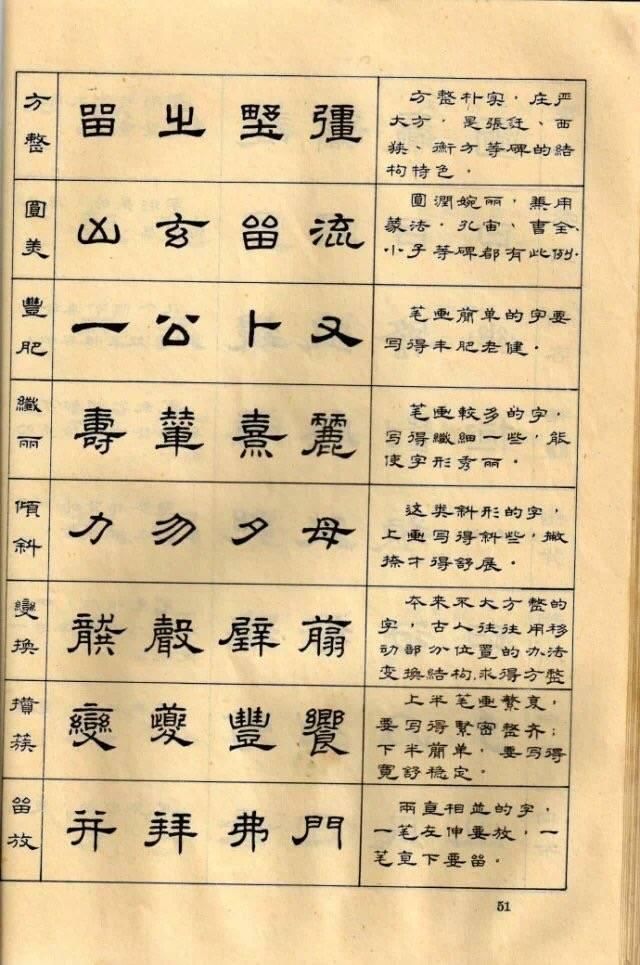 方整
留 之 彊
方整朴实,庄严
大方,是張迁、西
狭、衡方等碑的結
构特色。
圓美
玄 留 流
圓潤婉丽,兼用
篆法,孔宙、曹全、
小子等碑都有此例.
豐肥
一 公 卜 又
笔画簡单的字要
写得丰肥老健。
纖丽
壽 輦 熹 麗
笔画較多的字,
写得纖細一些,能
使字形秀丽。
傾斜
力 勿 夕 母
这类斜形的字,
上画写得斜些,撇
捺才得舒展。
變换
龔 聲 翦
本来不大方整的
字,古人往往用移
动部分位置的办法
变换結构,求得方整
攢蔟
變 夔 豐 饗
上半笔画繁复,
要写得緊密整齐;
下半簡单,要写得
寬舒稳定。
留放
并 拜 弗 門
兩直相並的字,
一笔左伸要放,一
笔直下要留。
51